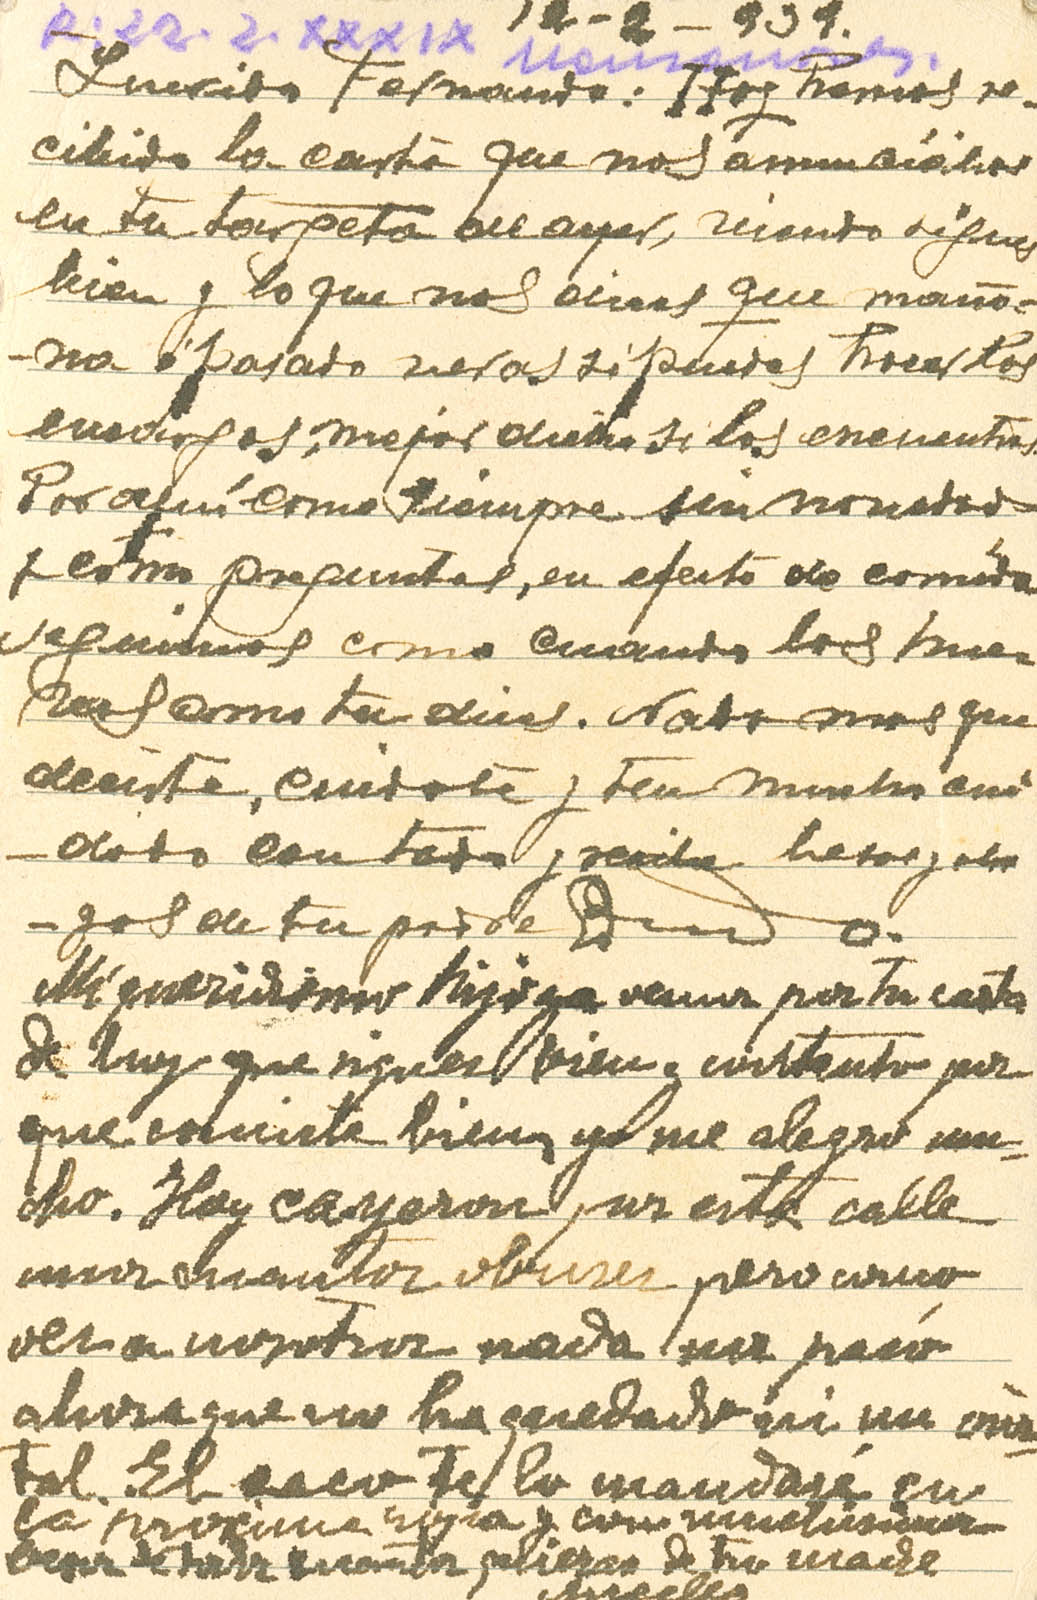 12-2-939.
R. 22. 2. XXXIX
Querido Fernando: Hoy hemos re-
cibido la carta que nos anunciabas
en tu targeta de ayer, viendo sigues
bien y lo que nos dices que maña-
-na ó pasado veras si puedes hacer los
encargos, mejor dicho si los encuentras
Por aquí como siempre sin novedad
y como preguntas, en efecto de comida
seguimos como cuando los hue-
vos como tu dices. Nada mas que
decirte, cuidate y ten mucho cui
-dado con todo y recibe besos y abra
-zos de tu padre
Mi queridisimo hijo ya vemos por tu carta
de hoy que sigues bien y contento por
que comiste bien, yo me alegro mu-
cho. Hoy cayeron por esta calle
unos cuantos obuses pero como
ves a nosotros nada nos pasó
ahora que no ha quedado ni un cris-
tal. El saco te lo mandaré en
la proxima ropa y con muchisimos
besos de todos cuantos quieras de tu madre